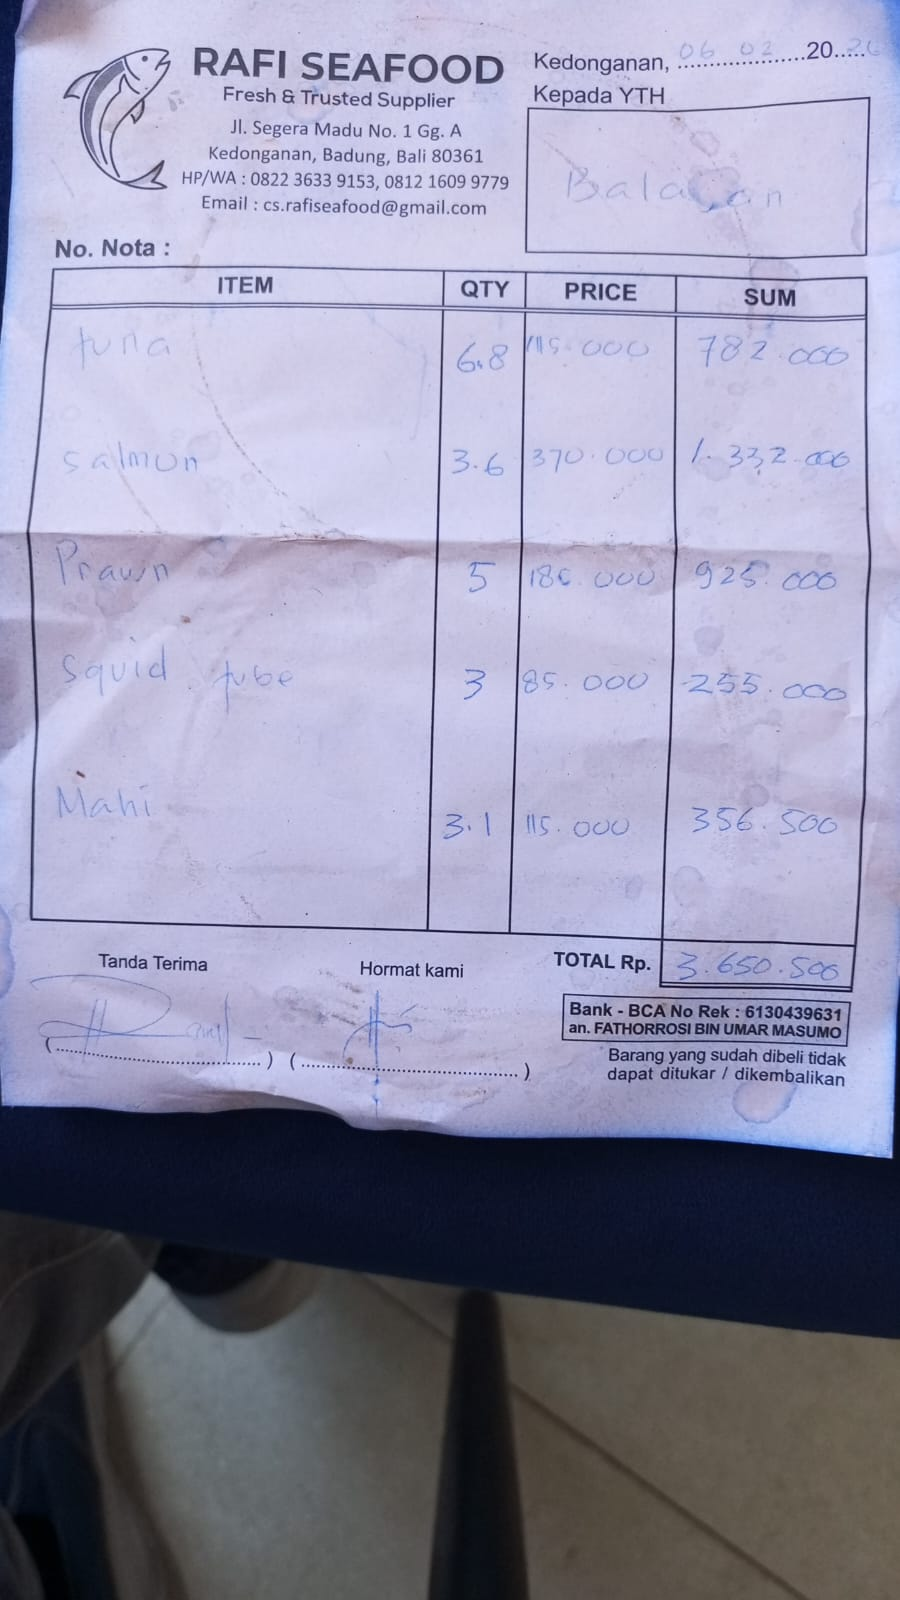 RAFI SEAFOOD
Fresh & Trusted Supplier
Jl. Segera Madu No. 1 Gg. A
Kedonganan, Badung, Bali 80361
HP/WA : 0822 3633 9153, 0812 1609 9779
Email : cs.rafiseafood@gmail.com
Kedonganan, 06 02 20 26
Kepada YTH
Balangan
No. Nota :
ITEM QTY PRICE SUM
tuna 6.8 115.000 782.000
Salmon 3.6 370.000 1.332.000
Prawn 5 185.000 925.000
Squid tube 3 85.000 255.000
Mahi 3.1 115.000 356.500
TOTAL Rp. 3.650.500
Tanda Terima
Hormat kami
Bank - BCA No Rek : 6130439631
an. FATHORROSI BIN UMAR MASUMO
Barang yang sudah dibeli tidak
dapat ditukar / dikembalikan